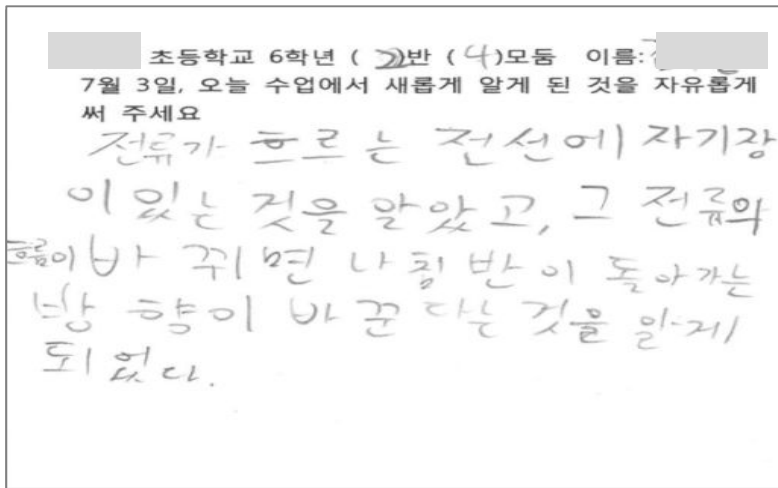 초등학교 6학년 ( 2)반 (4)모둠 이름:
7월 3일, 오늘 수업에서 새롭게 알게 된 것을 자유롭게
써 주세요
전류가 흐르는 전선에 자기장
이 있는 것을 알았고, 그 전류의
흐름이 바뀌면 나침반이 돌아가는
방향이 바꾼다는 것을 알게
되었다.